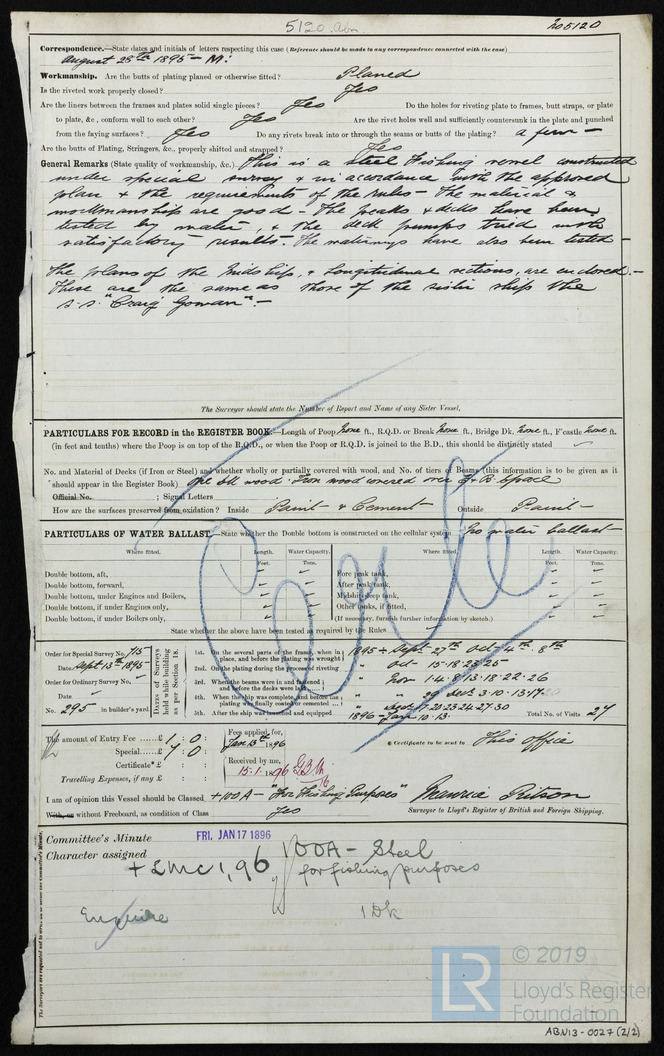 5120 Abn
No 5120
Correspondence.—State dates and initials of letters respecting this case (Reference should be made to any correspondence connected with the case)
August 28th 1895 - M:
Workmanship. Are the butts of plating planed or otherwise fitted? Planed
Is the riveted work properly closed? Yes
Are the liners between the frames and plates solid single pieces? Yes Do the holes for riveting plate to frames, butt straps, or plate
to plate, &c., conform well to each other? Yes Are the rivet holes well and sufficiently countersunk in the plate and punched
from the faying surfaces? Yes Do any rivets break into or through the seams or butts of the plating? a few —
Are the butts of Plating, Stringers, &c., properly shifted and strapped? Yes
General Remarks (State quality of workmanship, &c.) This is a steel Fishing vessel constructed
under special survey & in accordance with the approved
plan & the requirements of the rules - The material &
workmanship are good - The peaks & decks have been
tested by water, & the deck pumps tried with
satisfactory results. The waterways have also been tested -
The plans of the Midship, & Longitudinal sections, are enclosed. -
These are the same as those of the sister ship the
S.S. "Craig Gowan" -
The Surveyor should state the Number of Report and Name of any Sister Vessel.
PARTICULARS FOR RECORD in the REGISTER BOOK.—Length of Poop None ft., R.Q.D. or Break None ft., Bridge Dk. None ft., F'castle None ft.
(in feet and tenths) where the Poop is on top of the R.Q.D., or when the Poop or R.Q.D. is joined to the B.D., this should be distinctly stated
No. and Material of Decks (if Iron or Steel) and whether wholly or partially covered with wood, and No. of tiers of Beams (this information is to be given as it
should appear in the Register Book) One Dk wood Iron wood covered over E & B Space
Official No. ; Signal Letters
How are the surfaces preserved from oxidation? Inside Paint & Cement Outside Paint -
PARTICULARS OF WATER BALLAST.—State whether the Double bottom is constructed on the cellular system No water ballast
Where fitted. Length. Water Capacity. Where fitted. Length. Water Capacity.
Feet. Tons. Feet. Tons.
Double bottom, aft, Fore peak tank,
Double bottom, forward, After peak tank,
Double bottom, under Engines and Boilers, Midship deep tank,
Double bottom, if under Engines only, Other tanks, if fitted,
Double bottom, if under Boilers only, (If necessary, furnish further information by sketch.)
State whether the above have been tested as required by the Rules
Order for Special Survey No. 715
Date Sept. 13th 1895
Order for Ordinary Survey No.
Date
No. 295 in builder's yard.
Dates of Surveys held while building as per Section 18.
1st. On the several parts of the frame, when in place, and before the plating was wrought 1895 - Sept. 27th Oct. 4th 8th
2nd. On the plating during the process of riveting " Oct 15.18.23.25
3rd. When the beams were in and fastened and before the decks were laid " Nov 1.4.8.13.18.22.26
4th. When the ship was complete, and before the plating was finally coated or cemented
5th. After the ship was launched and equipped 1896 - Jany 10.13.
Total No. of Visits 27
The amount of Entry Fee £ 1 : 0 : Fees applied for,
Special £ 7 : 0 : Jan 13th 1896
Certificate* £ : : Received by me,
Travelling Expenses, if any £ : : 15.1.1896
Certificate to be sent to This office
I am of opinion this Vessel should be Classed +100A - "For Fishing Purposes" Maurice Ritson
With, or without Freeboard, as condition of Class Yes Surveyor to Lloyd's Register of British and Foreign Shipping.
Committee's Minute FRI. JAN 17 1896
Character assigned 100A - Steel
+ LMC 1,96 for fishing purposes
1 Dk
Enquire
The Surveyors are requested not to write on or below the space for Committee's Minute.
© 2019
LR Lloyd's Register
Foundation
ABN13-0027 (2/2)